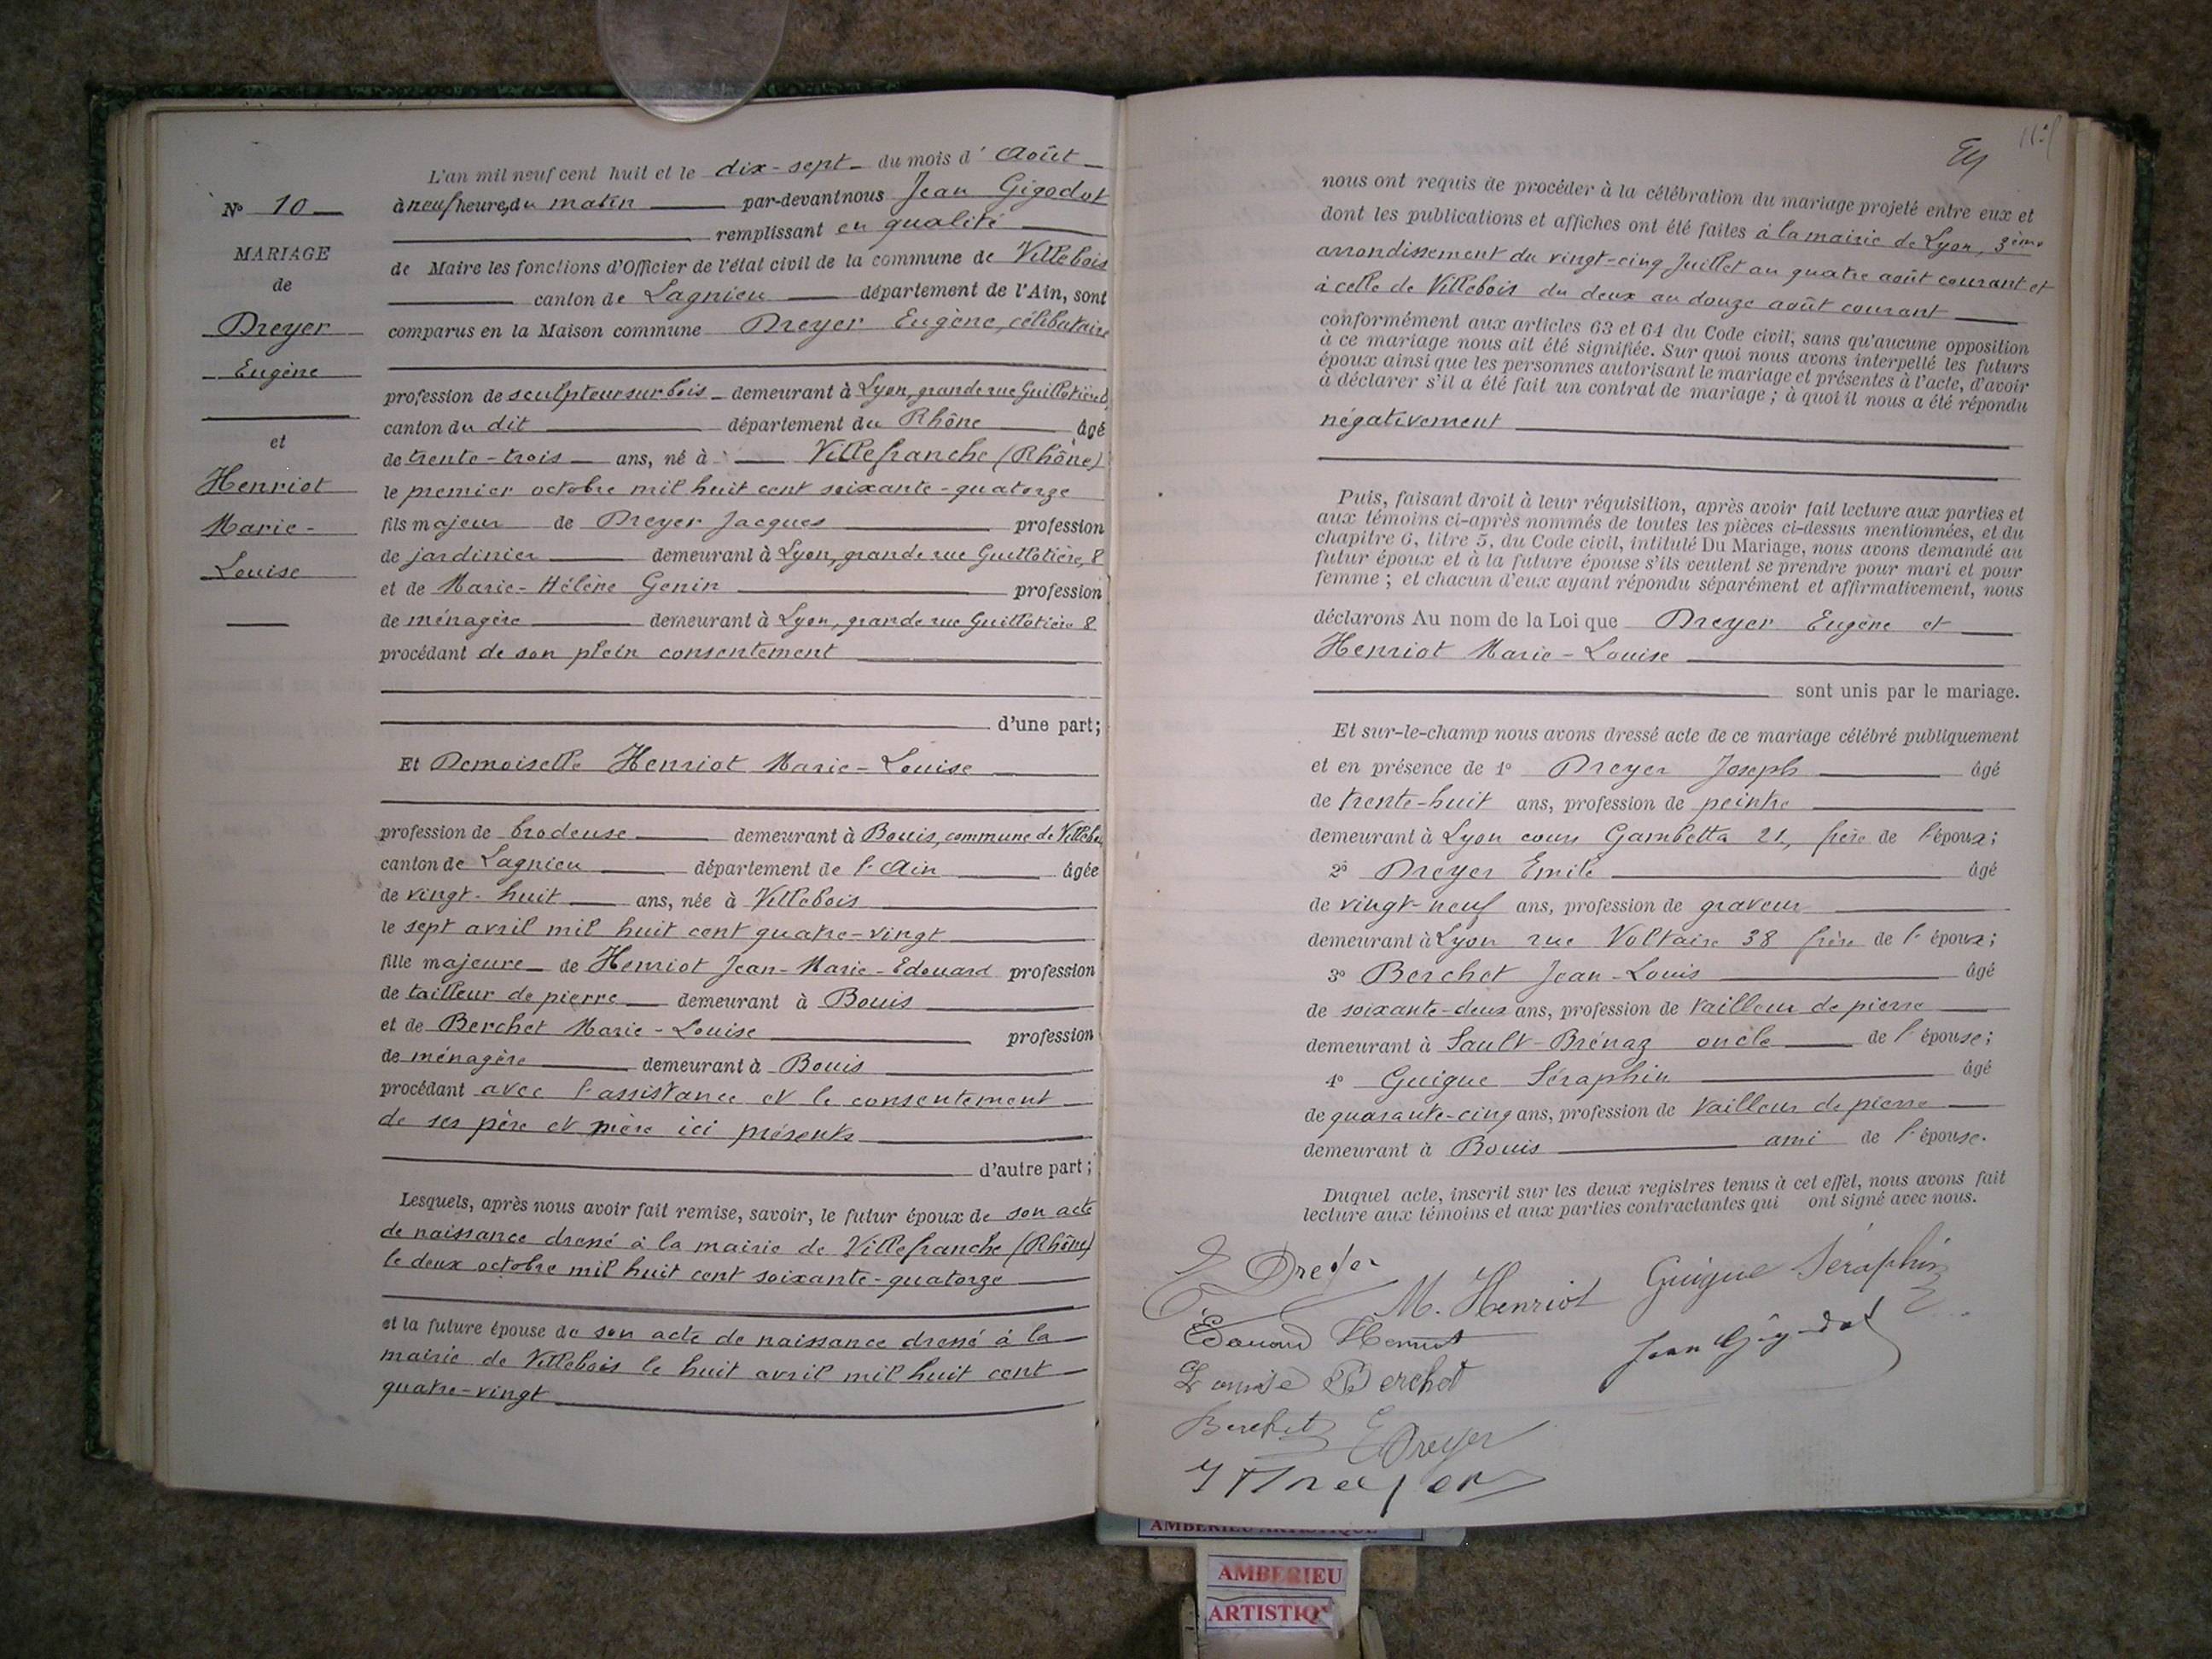 N° 10
MARIAGE
de
Dreyer
Eugène
et
Henriot
Marie-
Louise
L'an mil neuf cent huit et le dix-sept du mois d'Août
à neuf heures du matin par-devant nous Jean Gigodot
remplissant en qualité
de Maire les fonctions d'Officier de l'état civil de la commune de Villebois
canton de Lagnieu département de l'Ain, sont
comparus en la Maison commune Dreyer Eugène, célibataire
profession de sculpteur sur bois demeurant à Lyon, grande rue Guillotière
canton du dit département du Rhône âgé
de trente-trois ans, né à Villefranche (Rhône)
le premier octobre mil huit cent soixante-quatorze
fils majeur de Dreyer Jacques profession
de jardinier demeurant à Lyon, grande rue Guillotière, 8
et de Marie-Hélène Genin profession
de ménagère demeurant à Lyon, grande rue Guillotière 8
procédant de son plein consentement
d'une part;
Et Demoiselle Henriot Marie-Louise
profession de brodeuse demeurant à Bouis, commune de Villebois
canton de Lagnieu département de l'Ain âgée
de vingt-huit ans, née à Villebois
le sept avril mil huit cent quatre-vingt
fille majeure de Henriot Jean-Marie-Edouard profession
de tailleur de pierre demeurant à Bouis
et de Berchet Marie-Louise profession
de ménagère demeurant à Bouis
procédant avec l'assistance et le consentement
de ses père et mère ici présents
d'autre part;
Lesquels, après nous avoir fait remise, savoir, le futur époux de son acte
de naissance dressé à la mairie de Villefranche (Rhône)
le deux octobre mil huit cent soixante-quatorze
et la future épouse de son acte de naissance dressé à la
mairie de Villebois le huit avril mil huit cent
quatre-vingt
nous ont requis de procéder à la célébration du mariage projeté entre eux et
dont les publications et affiches ont été faites à la mairie de Lyon, 3ème
arrondissement du vingt-cinq Juillet au quatre août courant et
à celle de Villebois du deux au douze août courant
conformément aux articles 63 et 64 du Code civil, sans qu'aucune opposition
à ce mariage nous ait été signifiée. Sur quoi nous avons interpellé les futurs
époux ainsi que les personnes autorisant le mariage et présentes à l'acte, d'avoir
à déclarer s'il a été fait un contrat de mariage; à quoi il nous a été répondu
négativement
Puis, faisant droit à leur réquisition, après avoir fait lecture aux parties et
aux témoins ci-après nommés de toutes les pièces ci-dessus mentionnées, et du
chapitre 6, titre 5, du Code civil, intitulé Du Mariage, nous avons demandé au
futur époux et à la future épouse s'ils veulent se prendre pour mari et pour
femme; et chacun d'eux ayant répondu séparément et affirmativement, nous
déclarons Au nom de la Loi que Dreyer Eugène et
Henriot Marie-Louise
sont unis par le mariage.
Et sur-le-champ nous avons dressé acte de ce mariage célébré publiquement
et en présence de 1° Dreyer Joseph âgé
de trente-huit ans, profession de peintre
demeurant à Lyon cours Gambetta 21, frère de l'époux;
2° Dreyer Emile âgé
de vingt-neuf ans, profession de graveur
demeurant à Lyon rue Voltaire 38 frère de l'époux;
3° Berchet Jean-Louis âgé
de soixante-deux ans, profession de tailleur de pierre
demeurant à Sault-Brénaz oncle de l'épouse;
4° Guigue Séraphin âgé
de quarante-cinq ans, profession de tailleur de pierre
demeurant à Bouis ami de l'épouse.
Duquel acte, inscrit sur les deux registres tenus à cet effet, nous avons fait
lecture aux témoins et aux parties contractantes qui ont signé avec nous.
E Dreyer
M. Henriot
Guigue Séraphin
Edouard Henriot
Jean Gigodot
Louise Berchet
Berchet
E Dreyer
J Dreyer
AMBERIEU ARTISTIQUE
AMBERIEU
ARTISTIQ